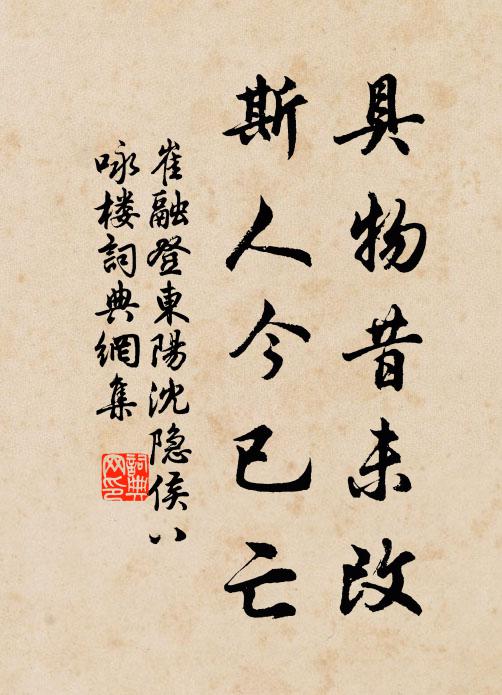 具物昔未改
斯人今已亡
崔融登東陽沈隐侯八
咏楼詞典網集
詞典网印